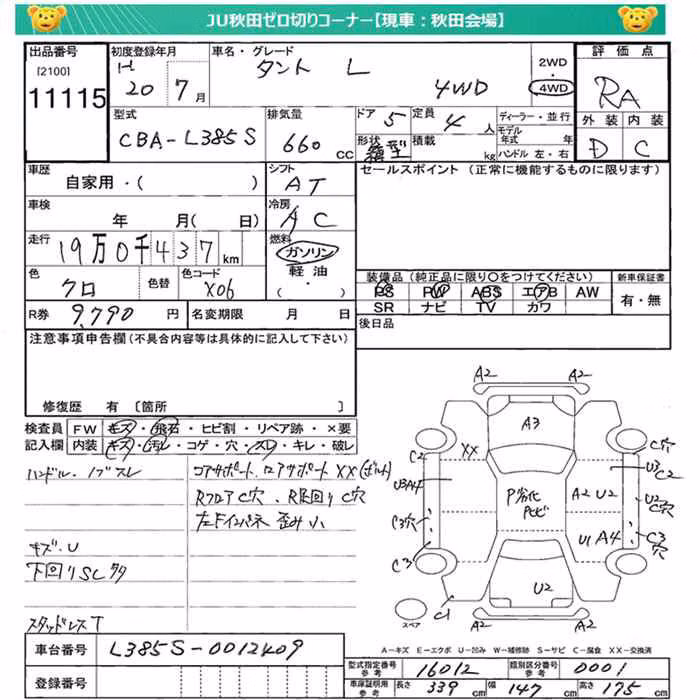 JU秋田ゼロ切りコーナー【現車：秋田会場】
出品番号
[2100]
11115
初度登録年月
H
20 7月
車名・グレード
タント L
4WD
2WD
・
4WD
評価点
RA
外装 内装
D C
型式
CBA-L385S
排気量
660 CC
ドア 5
定員 4 人
形状 箱型
積載 kg
ディーラー・並行
モデル年式 年
ハンドル 左・右
車歴
自家用・( )
シフト
AT
セールスポイント（正常に機能するものに限ります）
車検
年 月( 日)
冷房
AC
走行
19万0千437km
燃料
ガソリン
・
軽油
・
( )
色
クロ
色替
色コード
X06
装備品（純正品に限り○をつけてください）
PS PW ABS エアB AW
SR ナビ TV カワ
新車保証書
有・無
R券 9,790 円
名変期限 月 日
後日品
注意事項申告欄（不具合内容等は具体的に記入して下さい）
修復歴 有 〔箇所 〕
検査員 FW キズ・飛石・ヒビ割・リペア跡・×要
記入欄 内装 キズ・汚レ・コゲ・穴・スレ・キレ・破レ
ハンドル・ノブスレ
コアサポート、ロアサポート XX(ボルト)
Rフロア C穴、R足回り C穴
左Fインパネ 歪み小
キズ・U
下回りSC多数
スタッドレスT
A2 A2
A3
XX
C2
U3A4
C3穴
C3
C1
P劣化
Pヒビ
A2 U2
U1 A4
U2
C穴
U3
C2
U2
C穴
C3
穴
A2 A2
スペア
A－キズ E－エクボ U－凹み W－補修跡 S－サビ C－腐食 XX－交換済
車台番号 L385S-0012409
登録番号
型式指定番号 参考 16012
類別区分番号 参考 0001
車庫証明用 参考 長さ 339 cm 幅 147 cm 高さ 175 cm